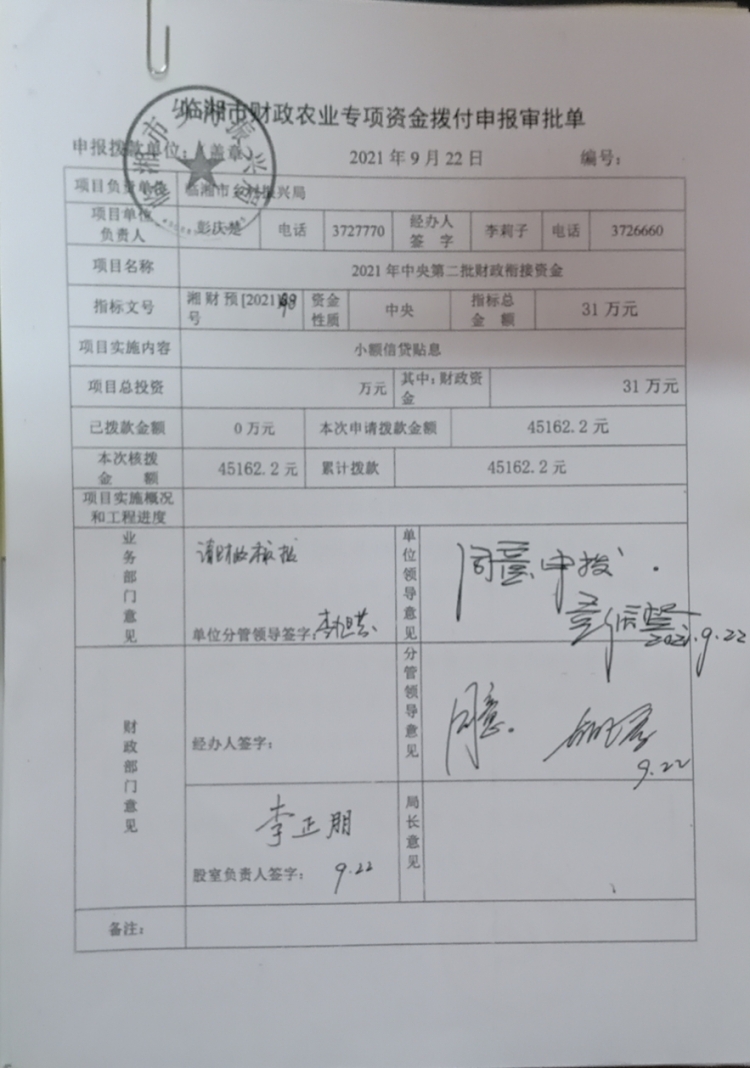 临湘市财政农业专项资金拨付申报审批单
申报拨款单位：（盖章） 2021年9月22日 编号：
项目负责单位 临湘市乡村振兴局
项目单位负责人 彭庆楚 电话 3727770 经办人签字 李莉子 电话 3726660
项目名称 2021年中央第二批财政衔接资金
指标文号 湘财预[2021] 号 资金性质 中央 指标总金额 31万元
项目实施内容 小额信贷贴息
项目总投资 万元 其中：财政资金 31万元
已拨款金额 0万元 本次申请拨款金额 45162.2元
本次核拨金额 45162.2元 累计拨款 45162.2元
项目实施概况和工程进度
业务部门意见 请财政核拨 单位分管领导签字： 单位领导意见 同意申拨 2021.9.22
财政部门意见 经办人签字： 分管领导意见 同意。 9.22
李正朋 股室负责人签字： 9.22 局长意见
备注：